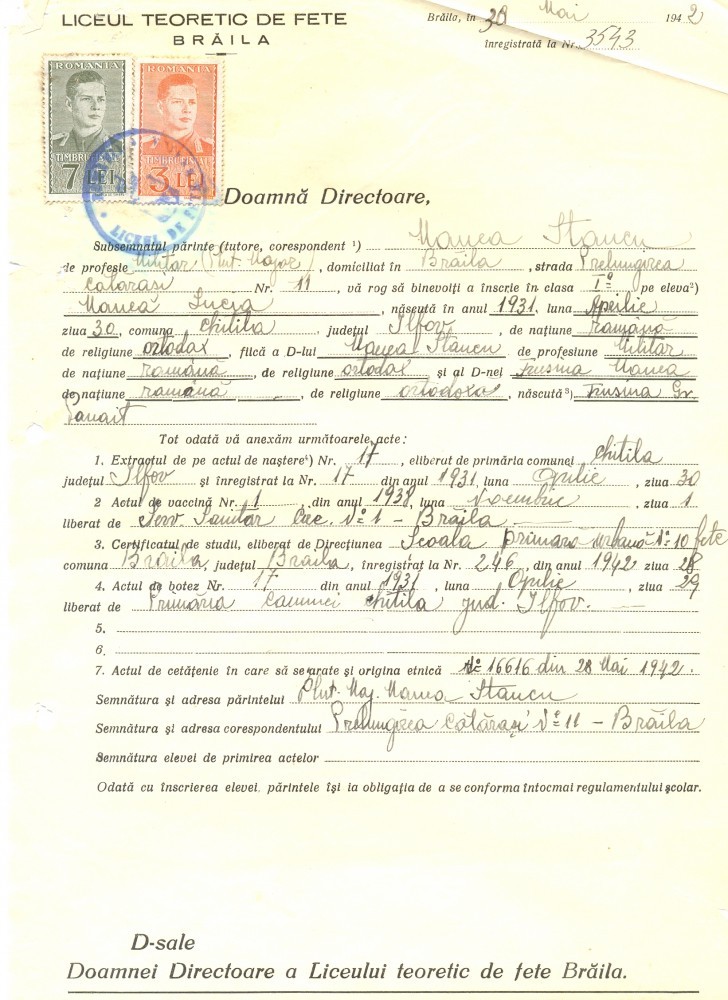 LICEUL TEORETIC DE FETE
BRĂILA
Brăila, în 30 Mai 1942
înregistrată la Nr. 3543
ROMANIA ROMANIA
TIMBRU FISCAL TIMBRU FISCAL
7 LEI 3 LEI
Doamnă Directoare,
Subsemnatul părinte (tutore, corespondent ¹) Manea Stancu
de profesie Militar (Plut. Major), domiciliat în Brăila, strada Prelungirea
Călărași Nr. 11, vă rog să binevoiți a înscrie în clasa I-a pe eleva²)
Manea Lucia, născută în anul 1931, luna Aprilie
ziua 30, comuna Chitila, județul Ilfov, de națiune română
de religiune ortodax, fiică a D-lui Manea Stancu de profesiune Militar
de națiune română, de religiune ortodax și al D-nei Frusina Manea
de națiune română, de religiune ortodoxa, născută³) Frusina Gr.
Panait
Tot odată vă anexăm următoarele acte:
1. Extractul de pe actul de naștere⁴) Nr. 17, eliberat de primăria comunei Chitila
județul Ilfov și înregistrat la Nr. 17 din anul 1931, luna Aprilie, ziua 30
2 Actul de vaccină Nr. 1, din anul 1938, luna Noembrie, ziua 1
liberat de Serv. Sanitar Circ. Nº 1 – Brăila
3. Certificatul de studii, eliberat de Direcțiunea Scoala primară urbană Nº 10 fete
comuna Brăila, județul Brăila, înregistrat la Nr. 246, din anul 1942 ziua 28
4. Actul de botez Nr. 17 din anul 1931, luna Aprilie, ziua 29
liberat de Primăria Comunei Chitila jud. Ilfov.
5.
6.
7. Actul de cetățenie în care să se arate și origina etnică Nº 16616 din 28 Mai 1942.
Semnătura și adresa părintelui Plut. Maj. Manea Stancu
Semnătura și adresa corespondentului Prelungirea Călărași Nº 11 – Brăila
Semnătura elevei de primirea actelor
Odată cu înscrierea elevei, părintele își ia obligația de a se conforma întocmai regulamentului școlar.
D-sale
Doamnei Directoare a Liceului teoretic de fete Brăila.